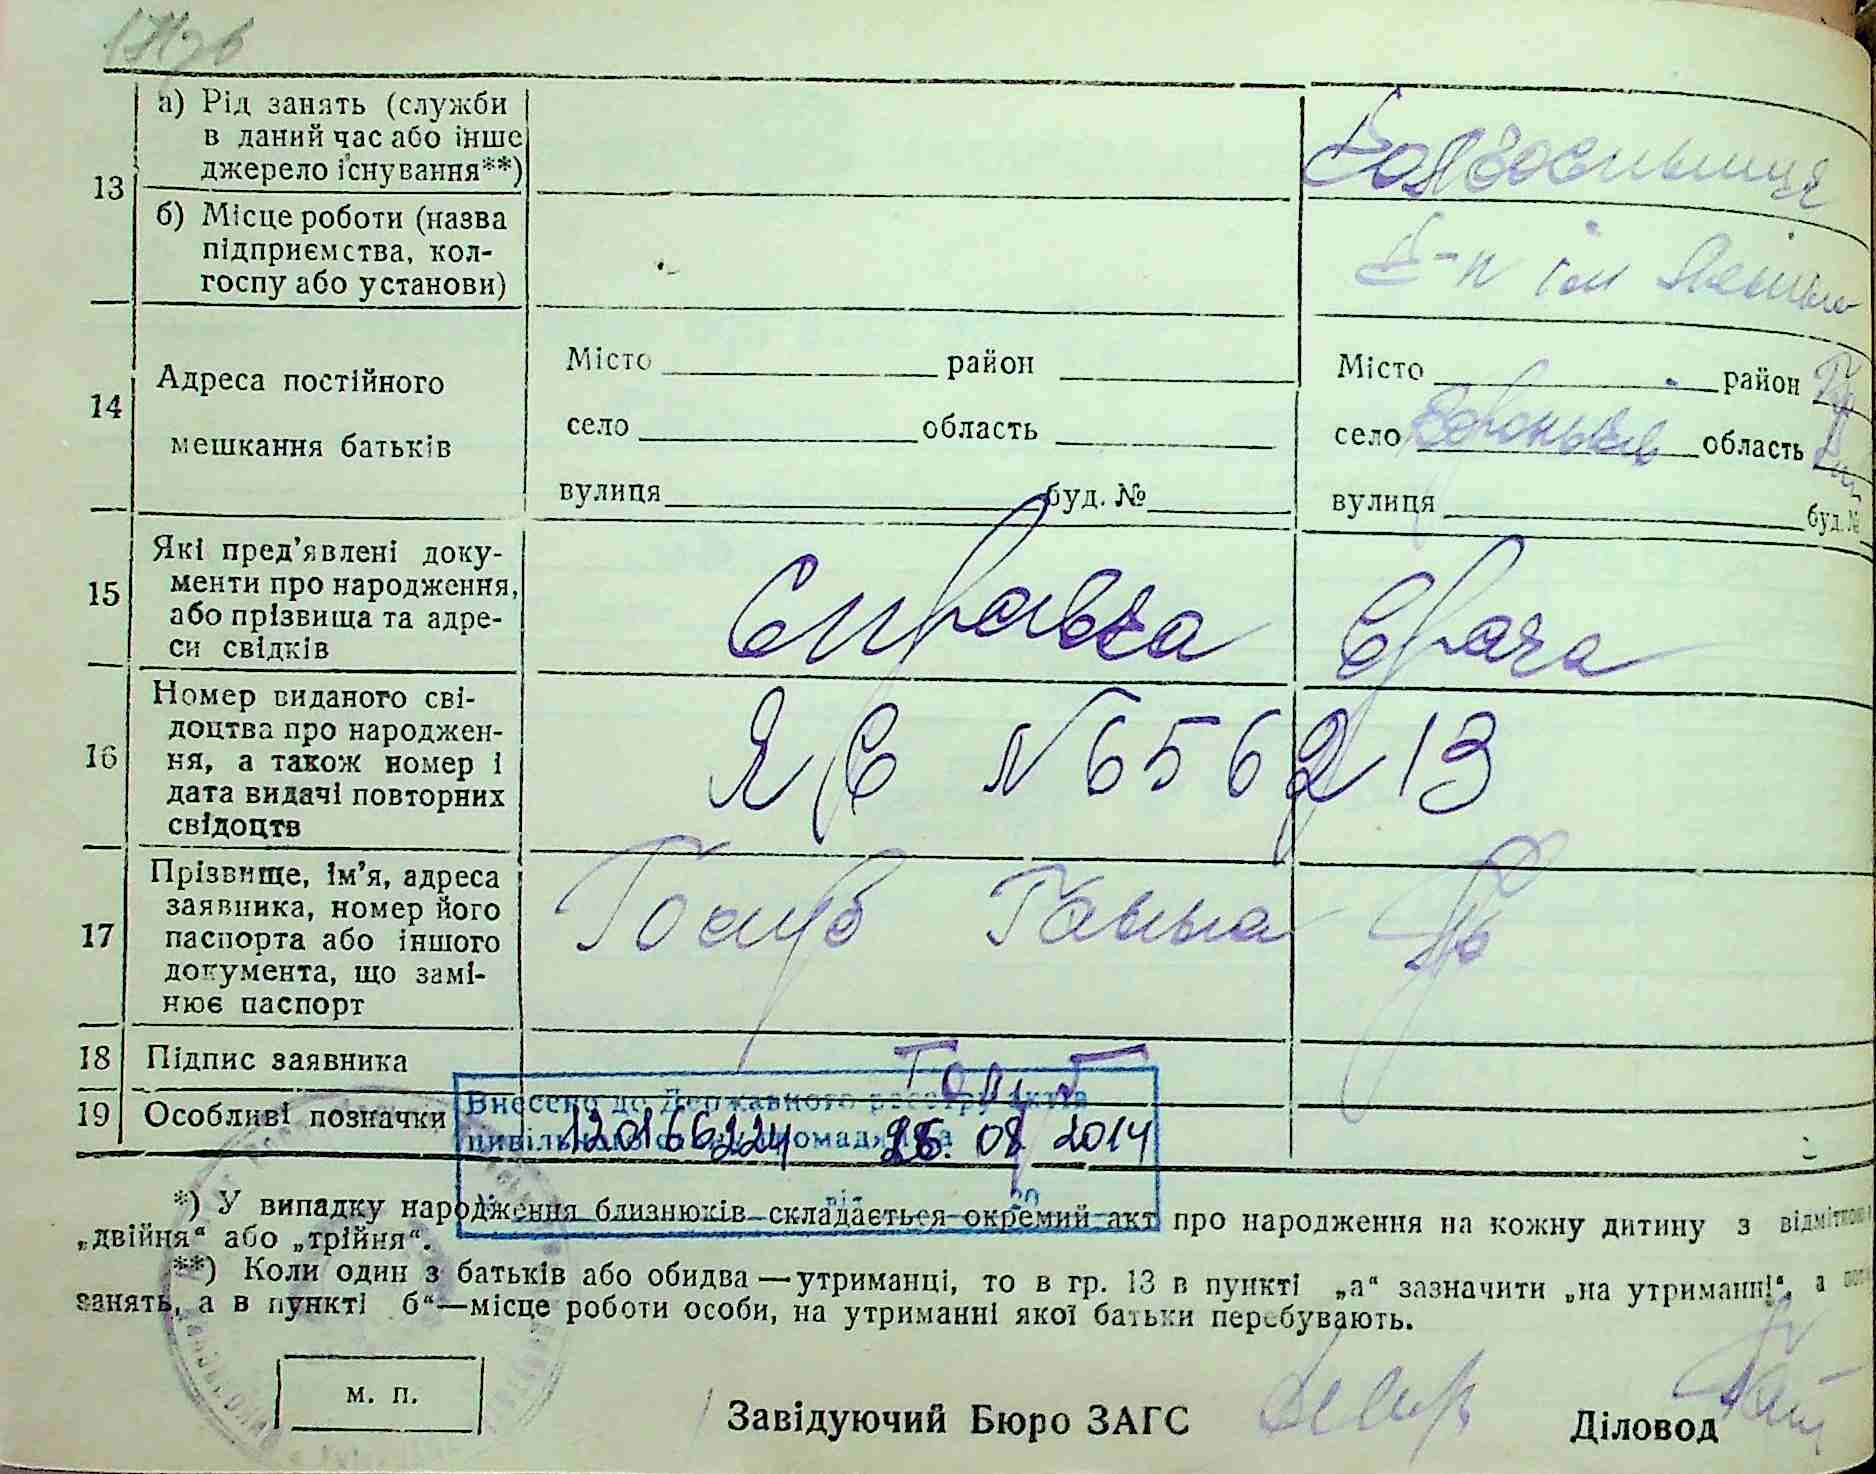 13
а) Рід занять (служби
в даний час або інше
джерело існування**)
б) Місце роботи (назва
підприємства, кол-
госпу або установи)
к-п ім Леніна
14
Адреса постійного
мешкання батьків
Місто район
село область
вулиця буд. №
Місто район
село область
вулиця буд. №
15
Які пред’явлені доку-
менти про народження,
або прізвища та адре-
си свідків
Справка врача
16
Номер виданого сві-
доцтва про народжен-
ня, а також номер і
дата видачі повторних
свідоцтв
ЯЄ №656213
17
Прізвище, ім’я, адреса
заявника, номер його
паспорта або іншого
документа, що замі-
нює паспорт
Голуб Ганна
18 Підпис заявника
Голуб
19 Особливі позначки
Внесено до Державного реєстру актів
цивільного стану громадян за
120166224 26. 08 2014
від 20
*) У випадку народження близнюків складається окремий акт про народження на кожну дитину з відміткою
„двійня“ або „трійня“.
**) Коли один з батьків або обидва—утриманці, то в гр. 13 в пункті „а“ зазначити „на утриманні“, а
занять, а в пункті б“—місце роботи особи, на утриманні якої батьки перебувають.
м. п.
Завідуючий Бюро ЗАГС
Діловод